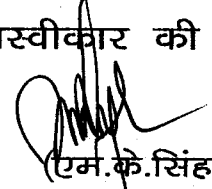 स्वीकार की
(एम.के.सिंह